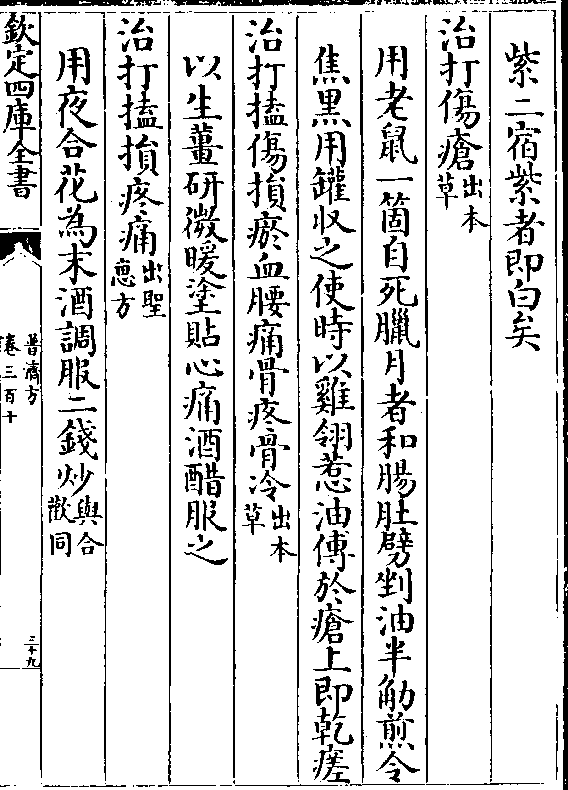 紫二宿紫者即白矣
治打傷瘡出本草
用老鼠一箇自死臘月者和腸肚劈剉油半觔煎令
焦黒用罐收之使時以雞翎惹油傅於瘡上即乾瘥
治打搕傷損瘀血腰痛骨疼骨冷出本草
以生薑研微暖塗貼心痛酒醋服之
治打搕損疼痛出聖恵方
用夜合花為末酒調服二錢炒與合歡同
欽定四庫全書
普濟方
卷三百十
三十九